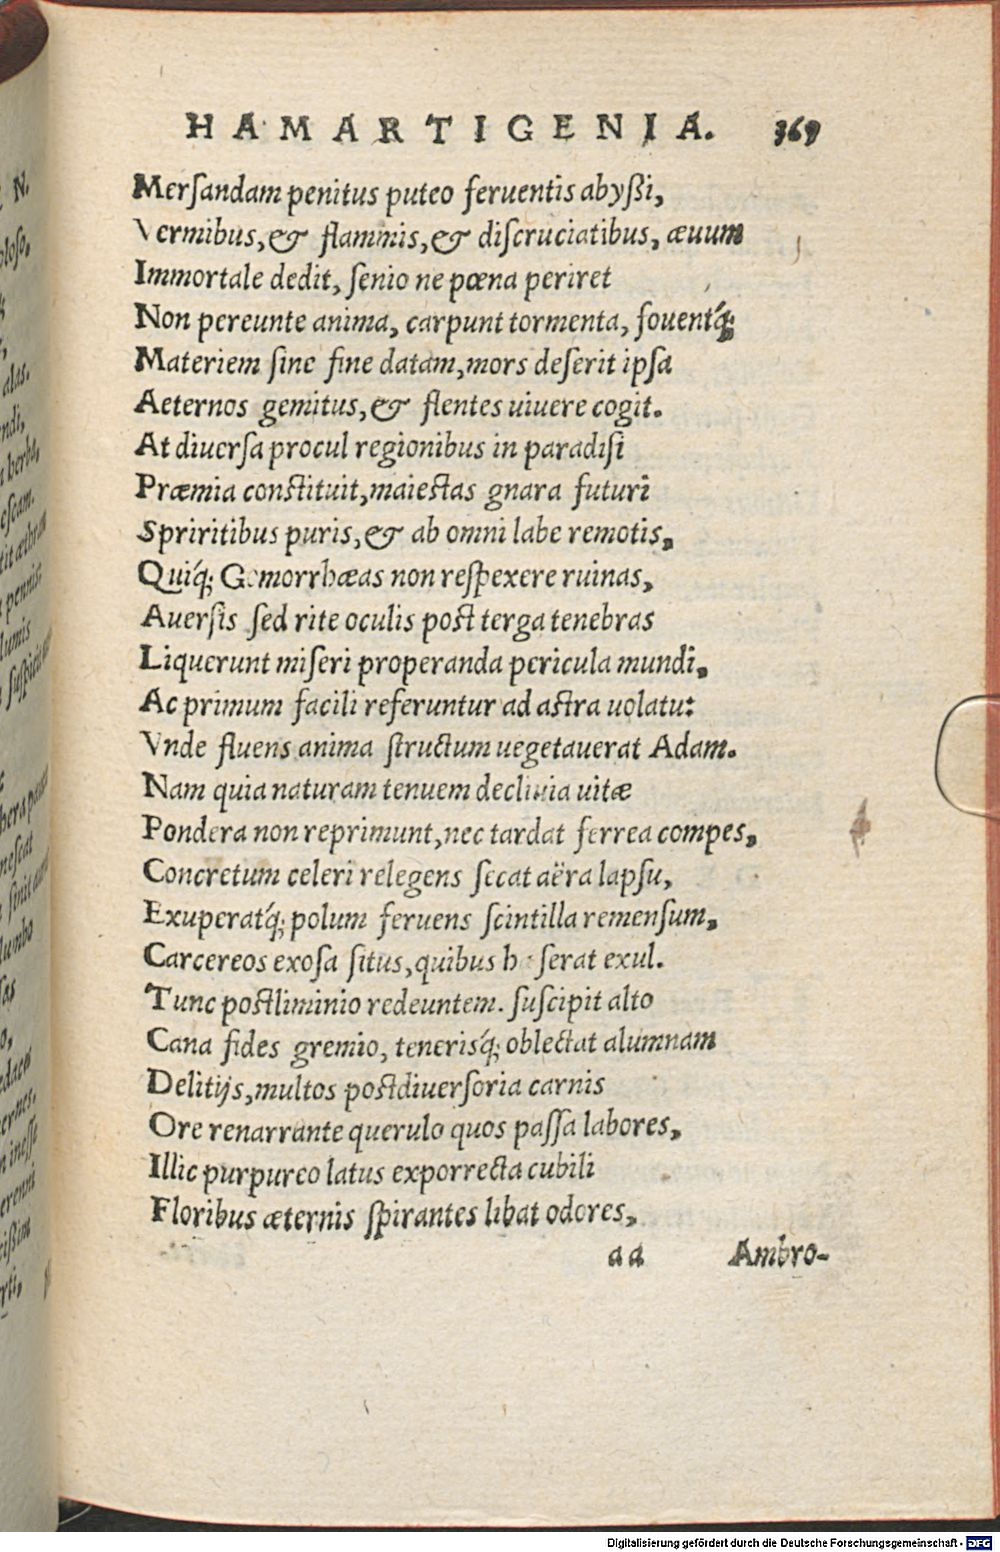 HAMARTIGENIA. 369
Merſandam penitus puteo feruentis abyßi,
Vermibus,& flammis,& diſcruciatibus, æuum
Immortale dedit, ſenio ne pœna periret
Non pereunte anima, carpunt tormenta, fouentq́;
Materiem ſine fine datam,mors deſerit ipſa
Aeternos gemitus,& flentes uiuere cogit.
At diuerſa procul regionibus in paradiſi
Præmia conſtituit,maieſtas gnara futuri
Spriritibus puris,& ab omni labe remotis,
Quiq́; Gomorrhæas non reſpexere ruinas,
Auerſis ſed rite oculis poſt terga tenebras
Liquerunt miſeri properanda pericula mundi,
Ac primum facili referuntur ad aſtra uolatu:
Vnde fluens anima ſtructum uegetauerat Adam.
Nam quia naturam tenuem decliuia uitæ
Pondera non reprimunt,nec tardat ferrea compes,
Concretum celeri relegens ſecat aëra lapſu,
Exuperatq́; polum feruens ſcintilla remenſum,
Carcereos exoſa ſitus,quibus h ſerat exul.
Tunc poſtliminio redeuntem. ſuſcipit alto
Cana fides gremio, tenerisq́; oblectat alumnam
Delitijs,multos poſtdiuerſoria carnis
Ore renarrante querulo quos paſſa labores,
Illic purpureo latus exporrecta cubili
Floribus æternis ſpirantes libat odores,
aa Ambro-
N.
oloſo,
alas.
ndi,
herba,
eſcam.
pennis.
lumis
ſuſpicit
neſcit
lumbo
ſas
Digitalisierung gefördert durch die Deutsche Forschungsgemeinschaft - DFG